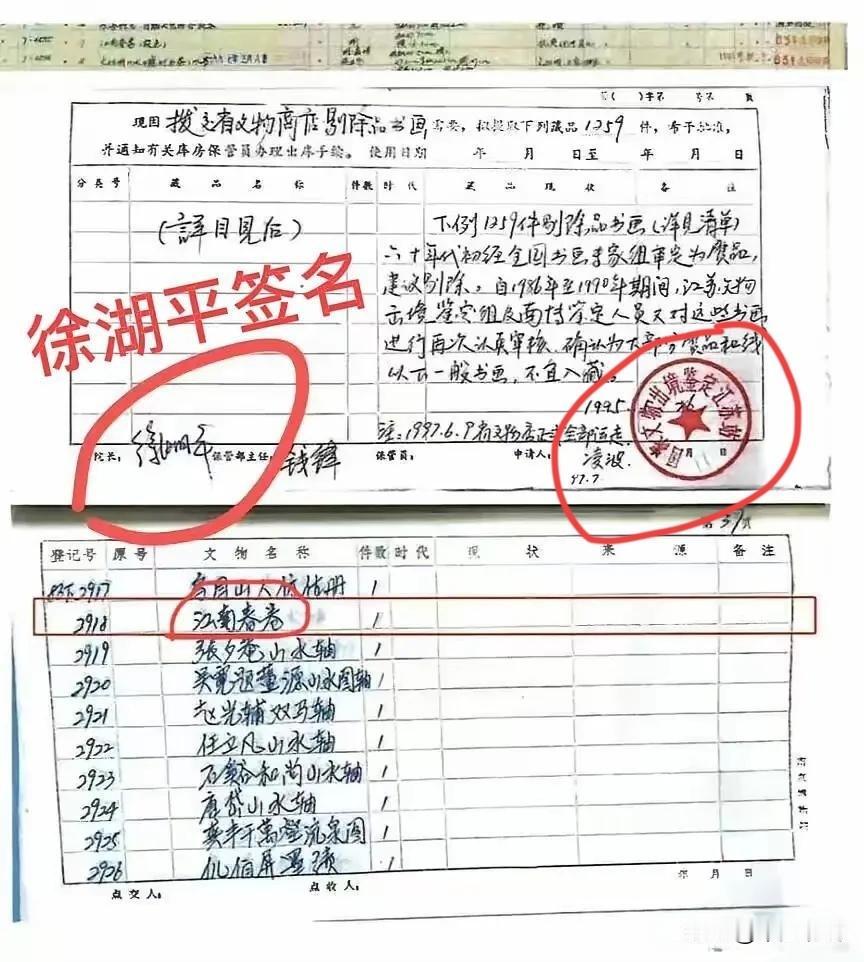 江南春卷(设色)
第( )字第 号第 页
现因 拨交省文物商店剔除品书画 需要,拟提取下列藏品1259件,希予批准,
并通知有关库房保管员办理出库手续。使用日期 年 月 日至 年 月 日
分类号 藏品名称 件数 时代 藏品现状 备注
(詳目見后)
下例1259件剔除品书画(详见清单)
六十年代初经全国书画专家组审定为赝品,
建议剔除。自1986年至1990年期间,江苏文物
出境鉴定组及南博鉴定人员又对这些书画
进行再次认真审核,确认为大部分赝品和线
以下一般书画,不宜入藏。
徐湖平签名
1995.
国家文物出境鉴定江苏站
月 日
注:1997.6.9省文物店正式全部运走
院长: 徐湖平 保管部主任: 钱锋 保管员: 申请人: 凌波
97.7
第39页
登记号 原号 文物名称 件数 时代 现状 来源 备注
2917 1
2918 江南春卷 1
2919 張夕庵山水轴 1
2920 吴寛题董源山水图轴 1
2921 赵光辅双马轴 1
2922 任立凡山水轴 1
2923 石谿和尚山水轴 1
2924 唐岱山水轴 1
2925 1
2926 1
点交人: 点收人: 年 月 日